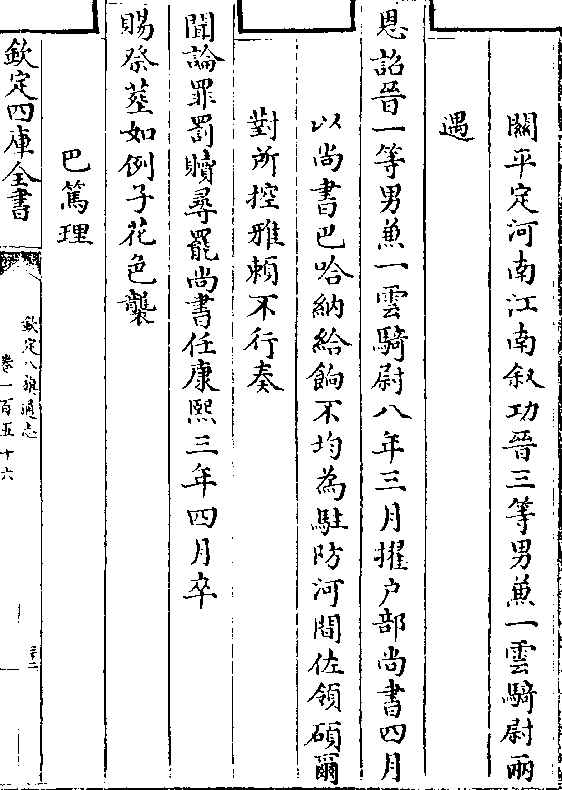 關平定河南江南叙功晉三等男兼一雲騎尉兩
遇
恩詔晉一等男兼一雲騎尉八年三月擢户部尚書四月
以尚書巴哈納給餉不均為駐防河間佐領碩爾
對所控雅賴不行奏
聞論罪罰贖尋罷尚書任康熙三年四月卒
賜祭塟如例子花色襲
巴篤理
欽定四庫全書
欽定八旗通志
卷一百五十六